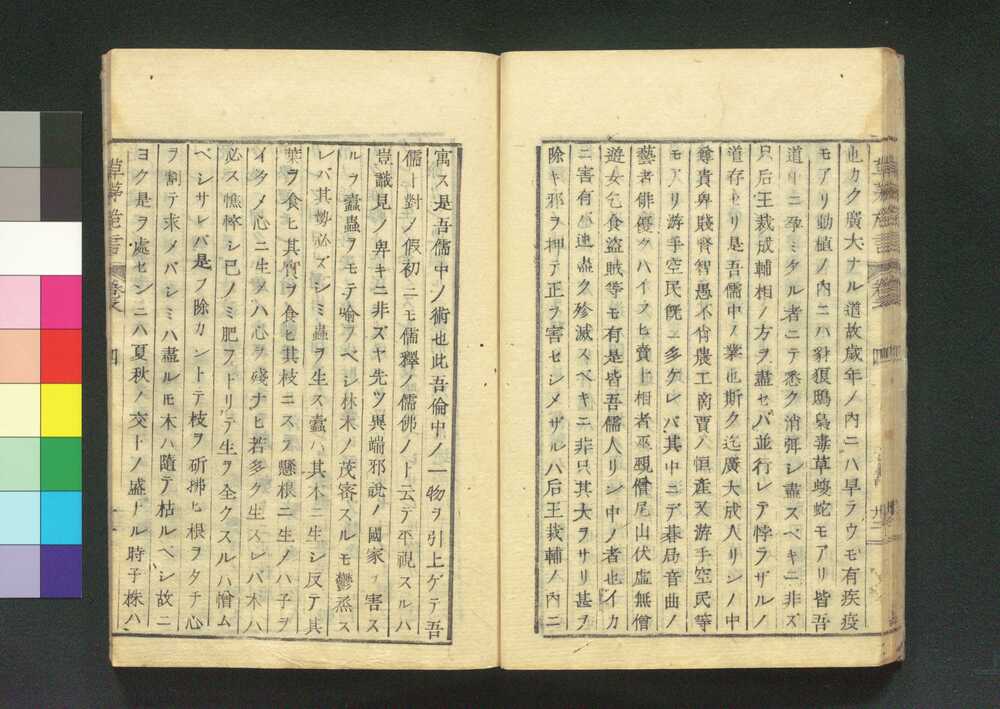 也カク廣大ナル道故歲年ノ內ニハ旱ラウモ有疾疫
モアリ動植ノ內ニハ豺狼鴟梟毒草蝮蛇モアリ皆吾
道中ニ孕ミタル者ニテ悉ク消彈シ盡スベキニ非ズ
只后王裁成輔相ノ方ヲ盡セバ並行レテ悖ラザルノ
道存セリ是吾儒中ノ業也斯ク迄廣大成人リンノ中
尊貴卑賤賢智愚不肖農工商賈ノ恒產又游手空民等
モアリ游手空民旣ニ多ケレバ其中ニテ碁局音曲ノ
藝者俳優クハイヲヒ賣卜相者巫覡僧尾山伏虛無僧
遊女乞食盜賊等モ有是皆吾儒人リン中ノ者也イカ
ニ害有迚速盡ク殄滅スベキニ非只其大ヲサリ甚ヲ
除キ邪ヲ押テ正ヲ害セシメザルハ后王裁輔ノ內ニ
寓ス是吾儒中ノ術也此吾倫中ノ一物ヲ引上ゲテ吾
儒ト對ノ假初ニモ儒釋ノ儒佛ノト云テ平視スルハ
豈識見ノ卑キニ非ズヤ先ツ異端邪說ノ國家ヲ害ス
ルヲ蠹蟲ヲモテ喻フベシ林木ノ茂密スルモ鬱烝ス
レバ其物必ズシミ蟲ヲ生ス蠹ハ其木ニ生シ反テ其
葉ヲ食ヒ其實ヲ食ヒ其枝ニスヲ懸根ニ生ノハ子ヲ
イタメ心ニ生メハ心ヲ殘ナヒ若多ク生スレバ木ハ
必ス憔悴シ已ノミ肥フトリテ生ヲ全クスルハ憎ム
ベシサレバ是ヲ除カントテ枝ヲ斫拂ヒ根ヲタチ心
ヲ割テ求メバシミハ盡ルモ木ハ隨テ枯ルベシ故ニ
ヨク是ヲ處センニハ夏秋ノ交トノ盛ナル時子株ハ